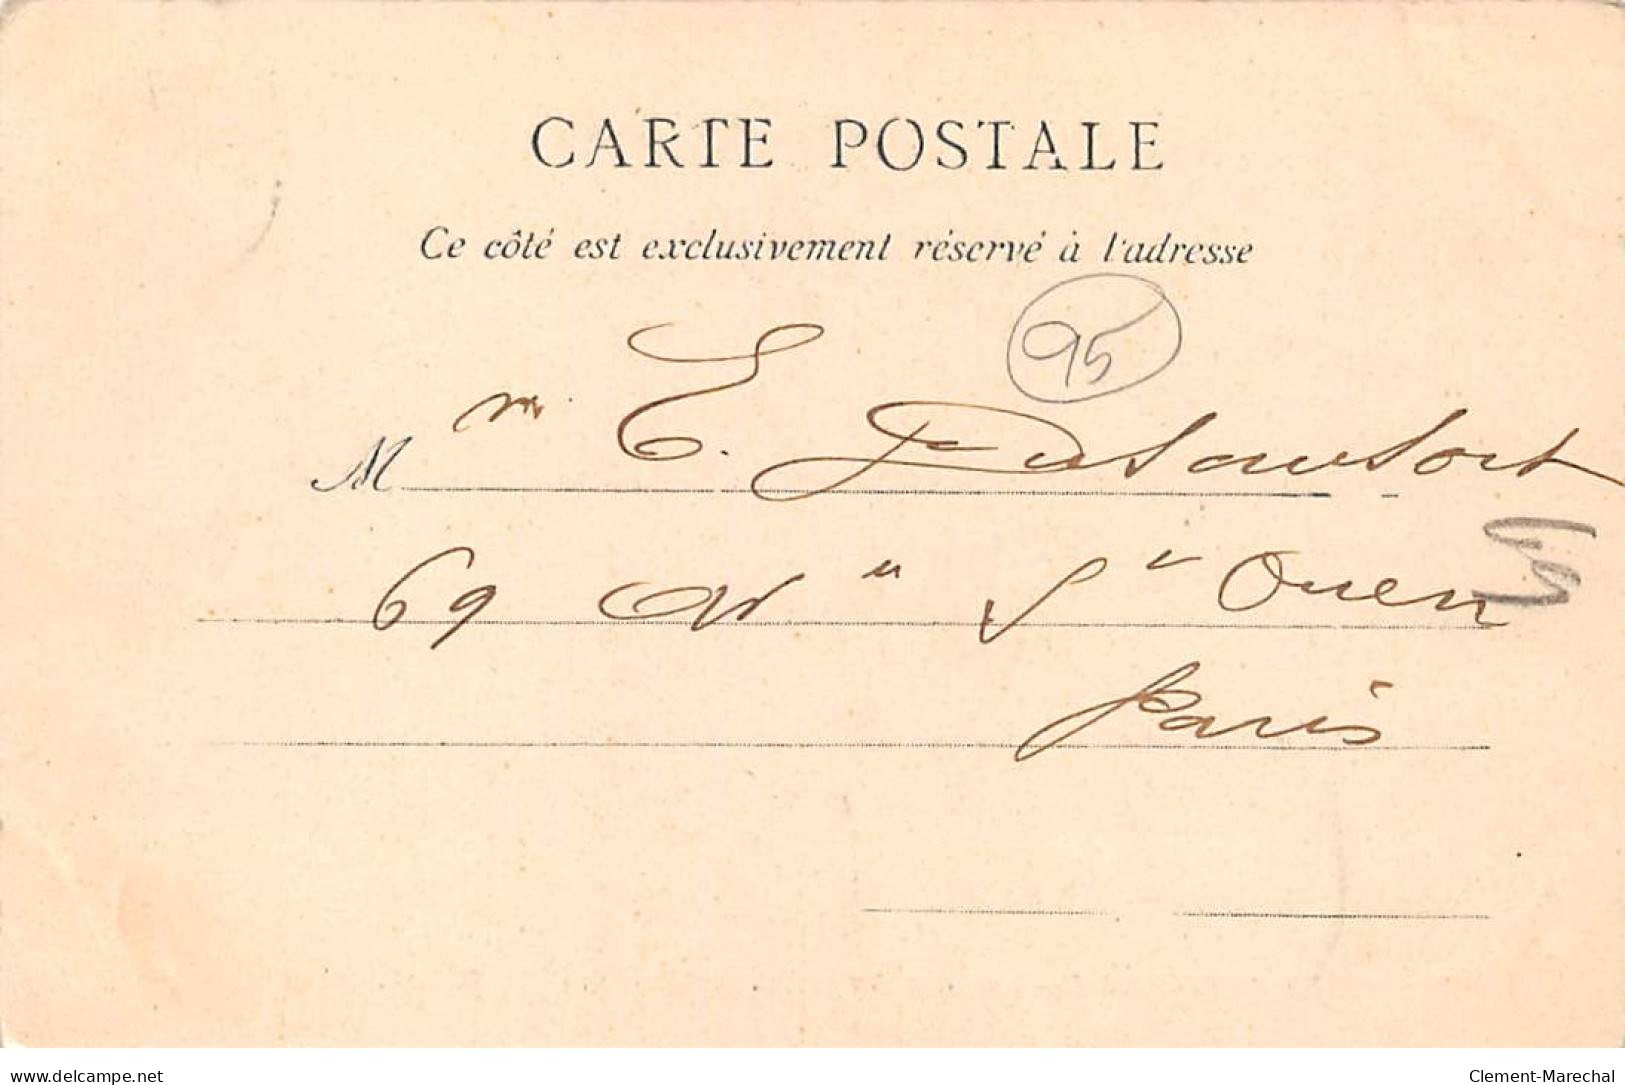 CARTE POSTALE
Ce côté est exclusivement réservé à l'adresse
95
M m E.
69 Av ue St Ouen
Paris
www.delcampe.net
Clement-Marechal